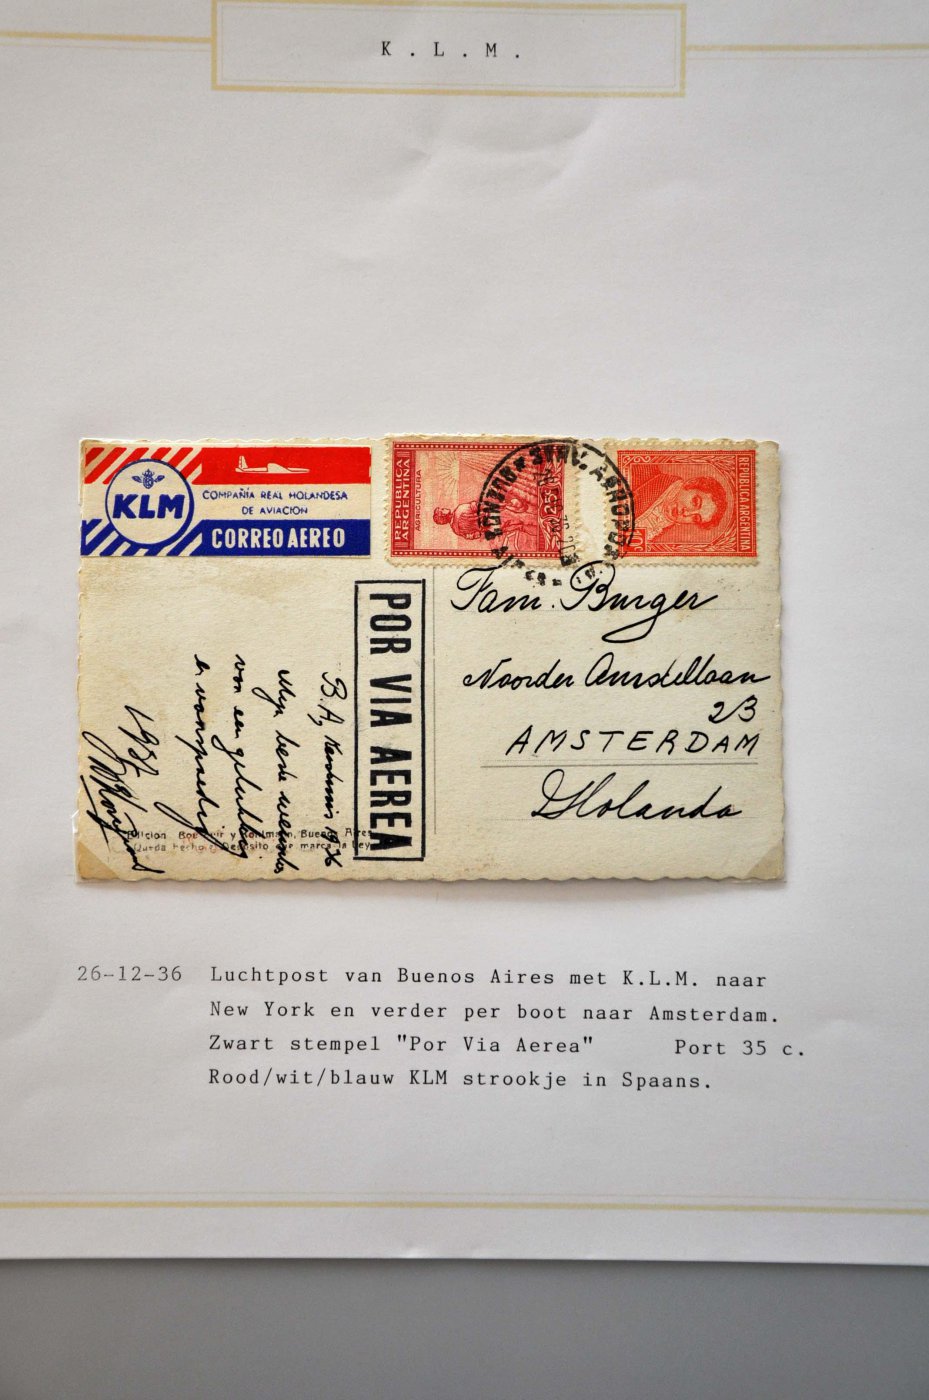 K.L.M.
KLM
COMPAÑIA REAL HOLANDESA
DE AVIACION
CORREO AEREO
REPUBLICA
ARGENTINA
AGRICULTURA
25
REPUBLICA ARGENTINA
BUENOS AIRES
POR VIA AEREA
Fam. Burger
Noorder Amstellaan
23
AMSTERDAM
Holanda
B.A, Kerstmis 1936
Mijn beste wenschen
van een gelukkig
en voorspoedig
1937
Edicion Bourquin y Kohlmann, Buenos Aires
Queda hecho el Deposito que marca la Ley
26-12-36 Luchtpost van Buenos Aires met K.L.M. naar
New York en verder per boot naar Amsterdam.
Zwart stempel "Por Via Aerea" Port 35 c.
Rood/wit/blauw KLM strookje in Spaans.